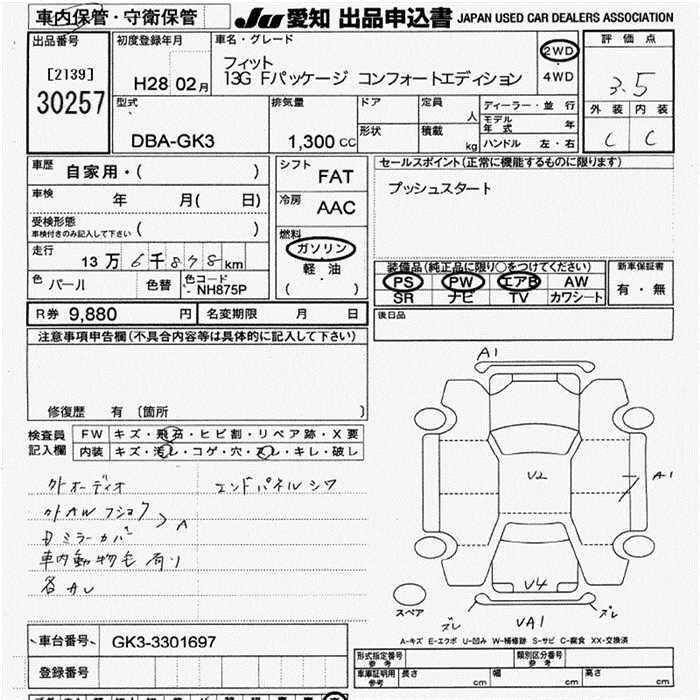 車内保管・守衛保管
JU 愛知 出品申込書 JAPAN USED CAR DEALERS ASSOCIATION
出品番号
[2139]
30257
初度登録年月
H28 02月
車名・グレード
フィット
13G Fパッケージ コンフォートエディション
2WD
・
4WD
評価点
3.5
外装 内装
C C
型式
DBA-GK3
排気量
1,300 CC
ドア
形状
定員
人
積載
kg
ディーラー・並 行
モデル年式 年
ハンドル 左・右
車歴 自家用・( )
車検 年 月( 日)
受検形態
車検付きのみ記入して下さい ( )
走行 13万6千878km
色 パール 色替 色コード NH875P
シフト FAT
冷房 AAC
燃料
ガソリン
軽・油
( )
セールスポイント(正常に機能するものに限ります)
プッシュスタート
装備品(純正品に限り○をつけてください)
PS PW エアB AW
SR ナビ TV カワシート
新車保証書
有・無
R券 9,880 円 名変期限 月 日
後日品
注意事項申告欄(不具合内容等は具体的に記入して下さい)
修復歴 有 〔箇所 〕
検査員記入欄
FW キズ・飛石・ヒビ割・リペア跡・X要
内装 キズ・汚レ・コゲ・穴・スレ・キレ・破レ
外オーディオ エンドパネルシワ
外AW フショク
ドミラーカバー
> A
車内動物毛有り
各AU
A1
V2
A1
V4
スペア
ズレ
VA1
ズレ
A-キズ E-エクボ U-凹み W-補修跡 S-サビ C-腐食 XX-交換済
車台番号 GK3-3301697
登録番号
形式指定番号 参考
類別区分番号 参考
車庫証明用 参考 長さ cm 幅 cm 高さ cm